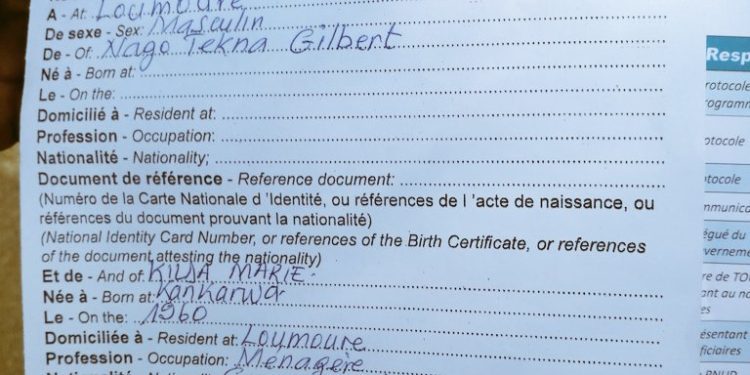 A - At: Loumoure
De sexe - Sex: Masculin
De - Of: Nago Tekna Gilbert
Né à - Born at:
Le - On the:
Domicilié à - Resident at:
Profession - Occupation:
Nationalité - Nationality;
Document de référence - Reference document:
(Numéro de la Carte Nationale d 'Identité, ou références de l 'acte de naissance, ou
références du document prouvant la nationalité)
(National Identity Card Number, or references of the Birth Certificate, or references
of the document attesting the nationality)
Et de - And of: MARIE
Née à - Born at: Kankarwa
Le - On the: 1960
Domiciliée à - Resident at: Loumoure
Profession - Occupation: Menagère
Resp
rotocole
rogramm
otocole
otocole
mmunica
égué du
vernemen
re de TO
ant au no
es
résentant
ficiaires
PNUD